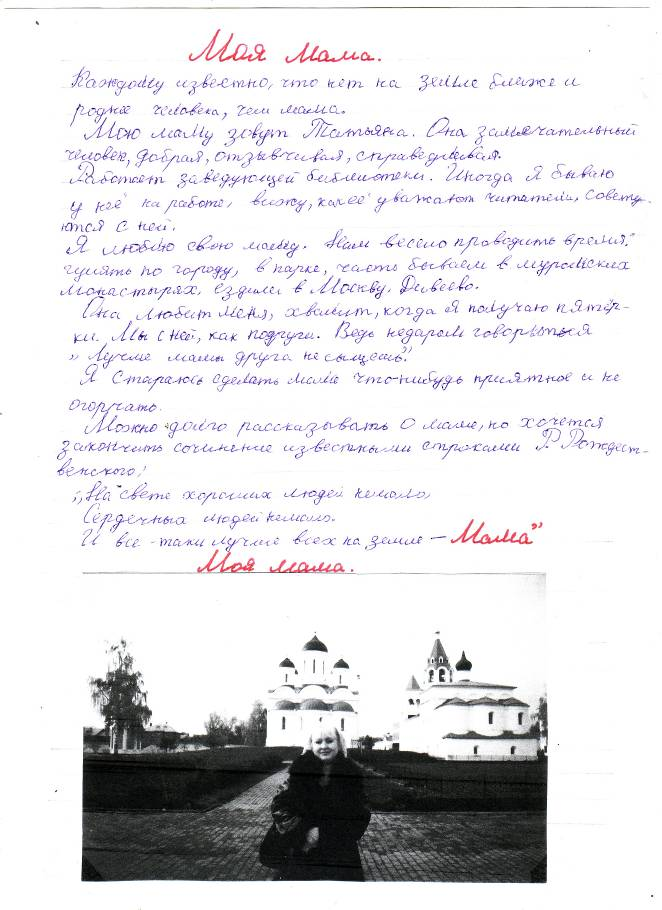 Моя мама.
Каждому известно, что нет на земле ближе и
роднее человека, чем мама.
Мою маму зовут Татьяна. Она замечательный
человек, добрая, отзывчивая, справедливая.
Работает заведующей библиотеки. Иногда я бываю
у неё на работе, вижу, как её уважают читатели, совету-
ются с ней.
Я люблю свою маму. Нам весело проводить время:
гулять по городу, в парке, часть бываем в муромских
монастырях, ездили в Москву, Дивеево.
Она любит меня, хвалит, когда я получаю пятёр-
ки. Мы с ней, как подруги. Ведь недаром говорыться
„Лучше мамы друга не сыщешь".
Я стараюсь сделать маме что-нибудь приятное и не
огорчать.
Можно долго рассказывать о маме, но хочется
закончить сочинение известными строками Р. Рождест-
венского:
„На свете хороших людей немало,
Сердечных людей немало.
И все-таки лучше всех на земле – Мама"
Моя мама.